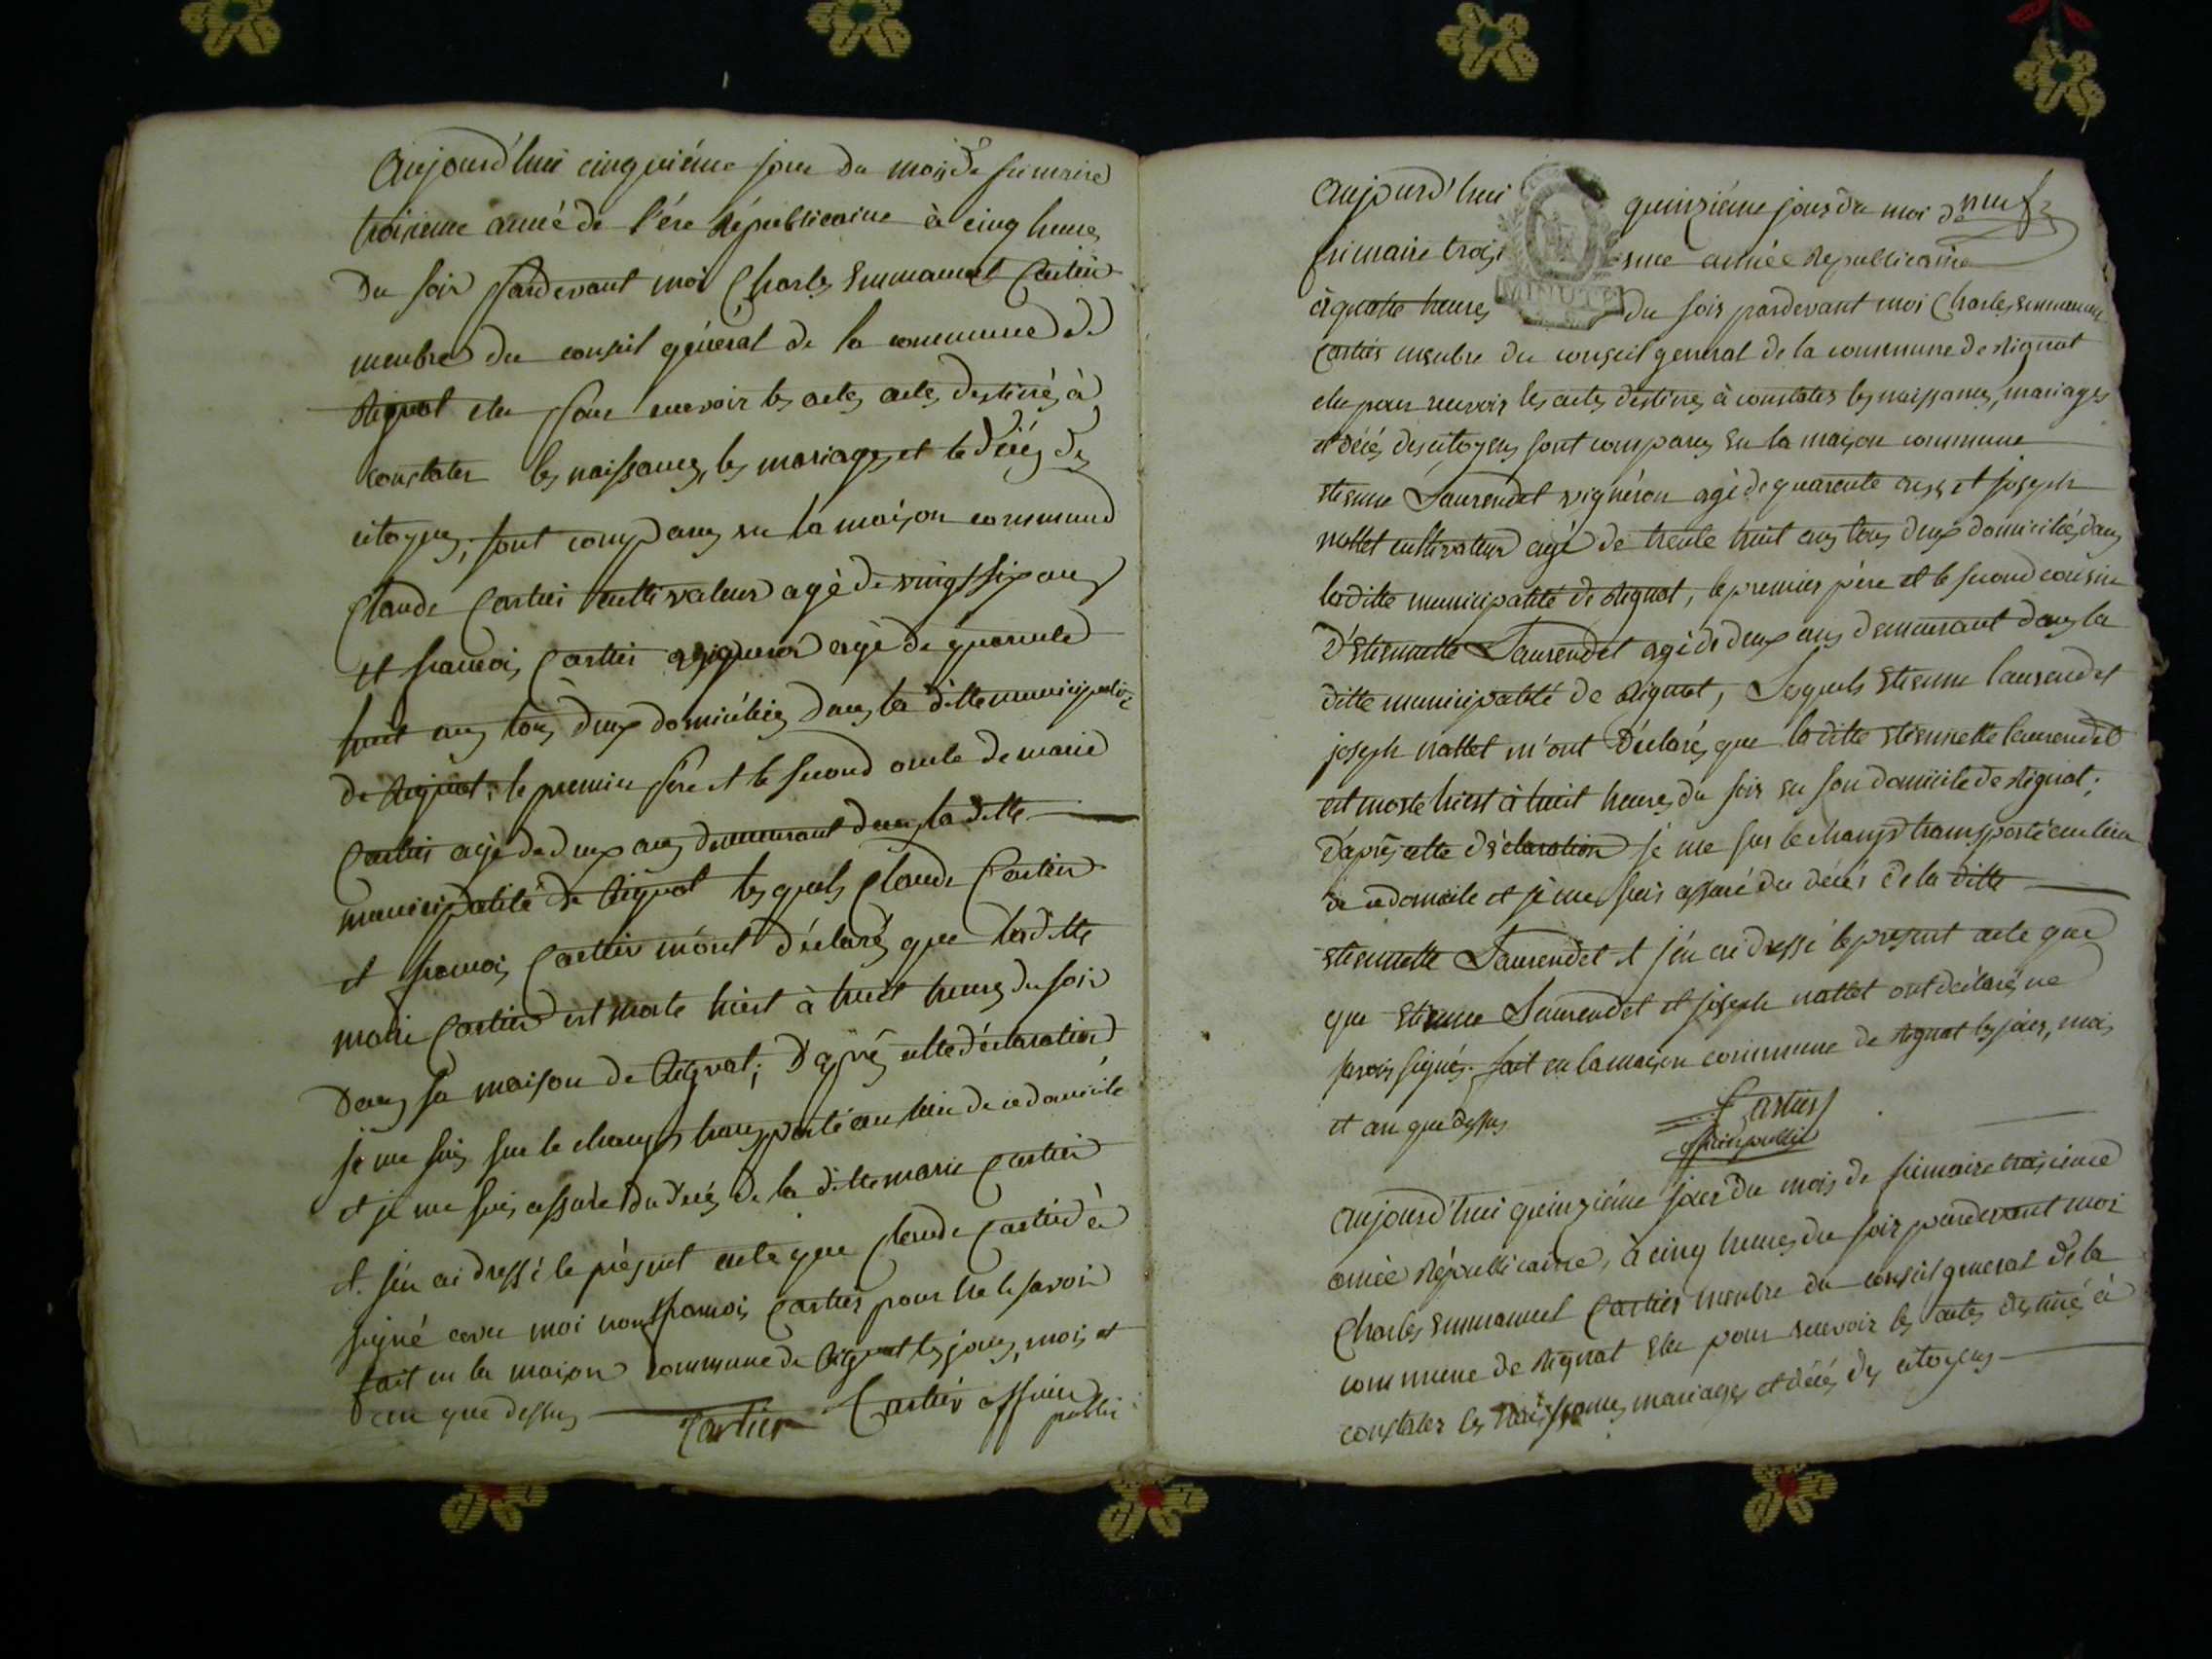 Aujourd'hui cinquiéme jour du mois de frimaire
troisieme année de l'ére Républicaine à cinq heures
du soir pardevant moi Charles Emmanuel Cartier
membre du conseil général de la commune de
Rignat elu pour recevoir les actes actes destinés à
constater les naissances, les mariages et le décés des
citoyens, sont comparus en la maison commune
Claude Cartier cultivateur agé de vingt six ans
et francois Cartier agé de quarante
huit ans tous deux domiciliés dans la ditte municipalité
de Rignat, le premier pere et le second oncle de marie
Cartier agé de deux ans demeurant dans la ditte
municipalité de Rignat les quels Claude Cartier
et francois Cartier m'ont déclarés que laditte
marie Cartier est morte hiert à huit heures du soir
dans sa maison de Rignat; d'aprés cette déclaration
je me suis sur le champs transporté au lieu de ce domicile
et je me suis assuré du décés de la ditte marie Cartier
et j'en ai dressé le présent acte que Claude Cartier à
signé avec moi non francois Cartier pour ne le savoir
fait en la maison commune de Rignat les jours, mois et
an que dessus
Cartier Cartier officier
public
Aujourd'hui quinziéme jour du moi de neuf
frimaire troisieme année Republicaine
MINUTE
à quatre heures du soir pardevant moi Charles emmanuel
Cartier membre du conseil general de la commune de Rignat
elu pour recevoir les actes destinés à constater les naissances, mariages
et décés des citoyens sont comparus en la maison commune
etienne Laurendet vignéron agé de quarante ans et joseph
nallet cultivateur agé de trente huit ans tous deux domiciliés dans
laditte municipalité de Rignat, le premier père et le second cousin
d'etiennette Laurendet agé de deux ans demeurant dans la
ditte municipalité de Rignat, Lesquels etienne laurendet
joseph nallet m'ont déclarés que la ditte etiennette laurendet
est morte hiert à huit heures du soir en son domicile de Rignat;
d'aprés cette déclaration je me sur le champs transporté au lieu
de ce domicile et je me suis assuré du décés de la ditte
etiennette Laurendet et j'en ai dressé le present acte que
que etienne Laurendet et joseph nallet ont déclaré ne
savoir signés. fait en la maison commune de Rignat les jours, mois
et an que dessus
Cartier
officier public
Aujourd'hui quinziéme jour du mois de frimaire troisieme
année Républicaine, à cinq heures du soir pardevant moi
Charles Emmanuel Cartier membre du conseil general de la
commune de Rignat elu pour recevoir les actes destinés à
constater les naissances, mariages et décés des citoyens